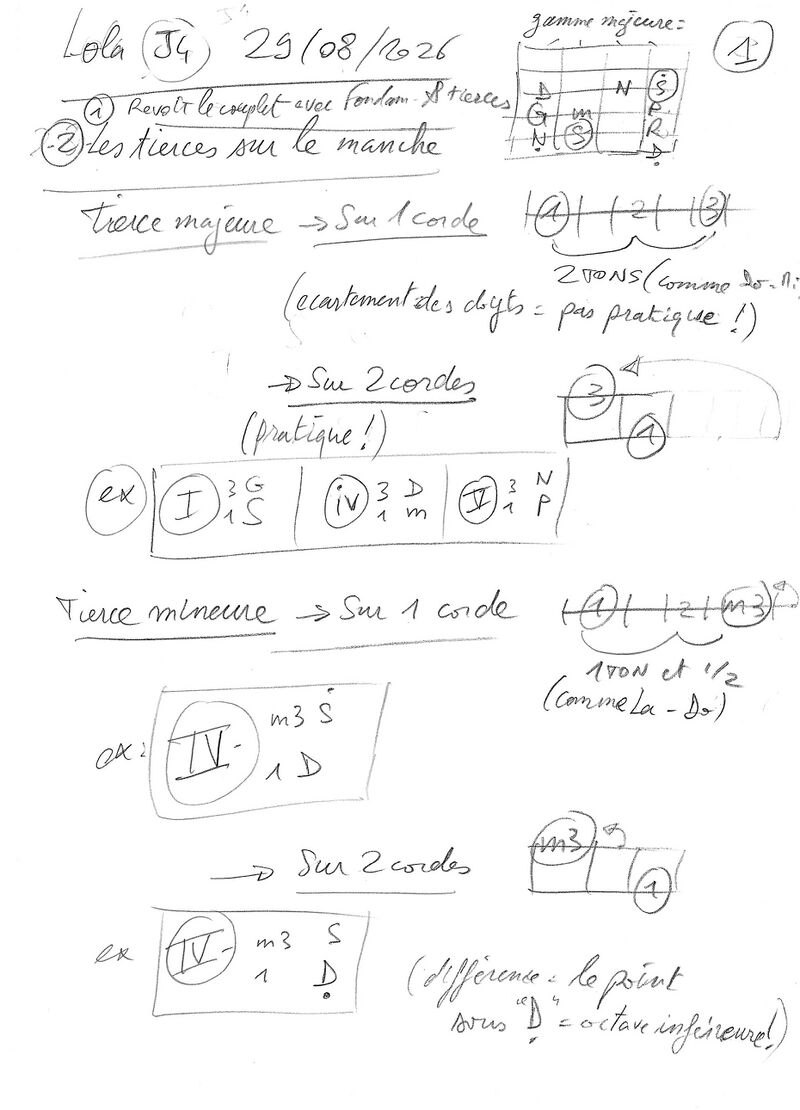 Lola J4 29/08/2026
gamme majeure =
1
1 Revoir le couplet avec Fondam. & tierces
2 Les tierces sur le manche
D N Ṡ
G m P
Ṇ S R
Ḍ
Tierce majeure → Sur 1 corde
1 2 3
2 TONS (comme Do-Mi
(ecartement des doigts = pas pratique !)
→ Sur 2 cordes
3
1
(pratique !)
ex I 3 G iv 3 D V 3 N
1 S 1 m 1 P
Tierce mineure → Sur 1 corde
1 2 m3
1 TON et 1/2
(comme La - Do)
ex: IV- m3 Ṡ
1 D
→ Sur 2 cordes
m3
1
ex IV- m3 S
1 Ḍ
(différence = le point
sous "Ḍ" = octave inférieure !)